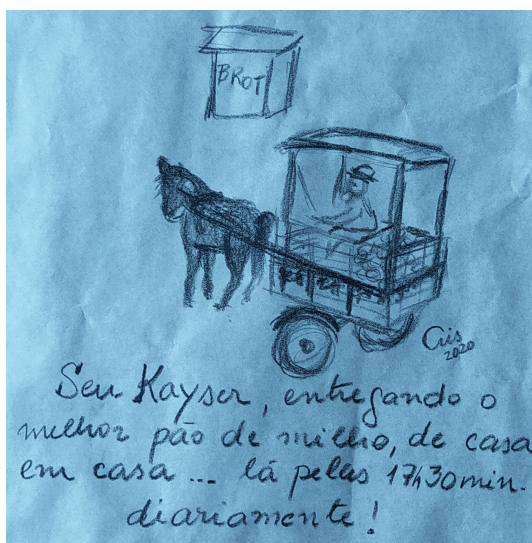 BROT
Cris
2020
Seu Kayser, entregando o
melhor pão de milho, de casa
em casa... lá pelas 17h30min.
diariamente!